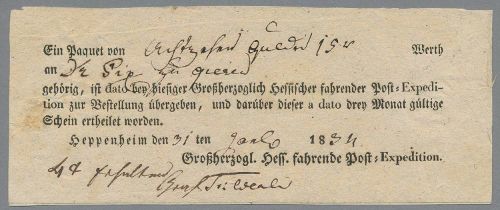 Ein Paquet von Achtzehen Gulden 15 x Werth
an
gehörig, ist dato bey hiesiger Großherzoglich Hessischer fahrender Post-Expedi-
tion zur Bestellung übergeben, und darüber dieser a dato drey Monat gültige
Schein ertheilet worden.
Heppenheim den 31 ten 1834
Großherzogl. Hess. fahrende Post-Expedition.